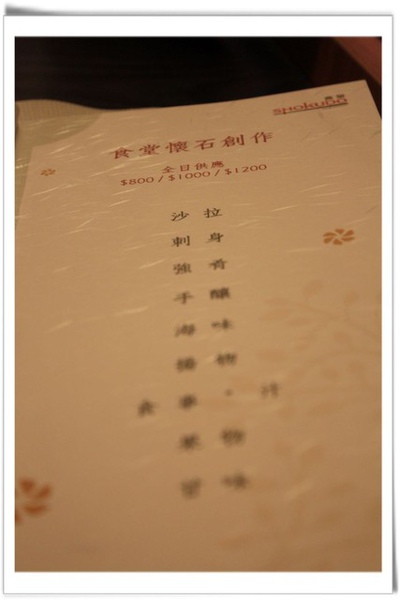 食堂
shokudo
食堂懷石創作
全日供應
$800 / $1000 / $1200
沙拉
刺身
強肴
手釀
海味
揚物
食事・汁
果物
甘味